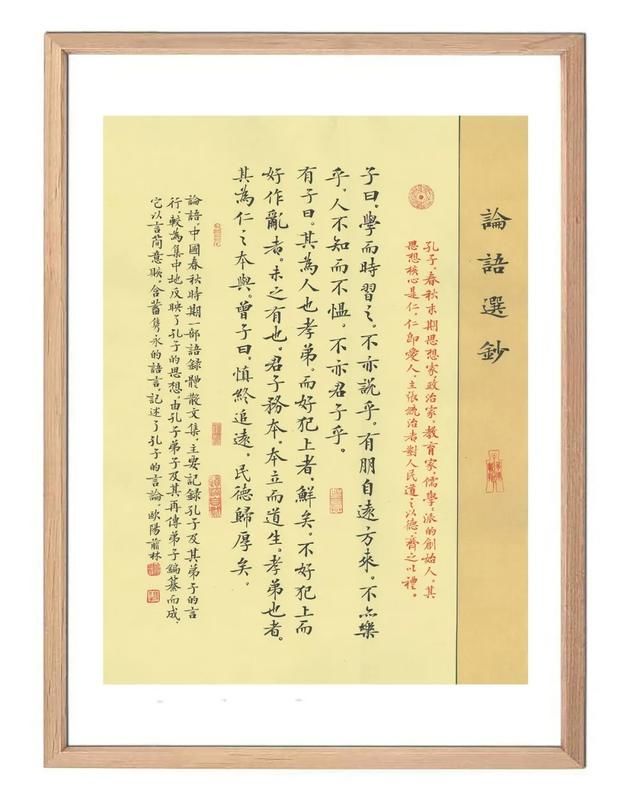 論語選鈔
孔子,春秋末期思想家政治家、教育家,儒學派的創始人。其
思想核心是仁,仁即愛人。主張統治者對人民道之以德,齊之以禮。
子曰。學而時習之。不亦說乎。有朋自遠方來。不亦樂
乎。人不知而不慍。不亦君子乎。
有子曰。其為人也孝弟。而好犯上者。鮮矣。不好犯上而
好作亂者。未之有也。君子務本。本立而道生。孝弟也者。
其為仁之本與。曾子曰。慎終追遠。民德歸厚矣。
論語,中國春秋時期一部語録體散文集,主要記録孔子及其弟子的言
行,較為集中地反映了孔子的思想。由孔子弟子及其再傳弟子編纂而成,
它以言簡意賅,含蓄雋永的語言,記述了孔子的言論。歐陽前林